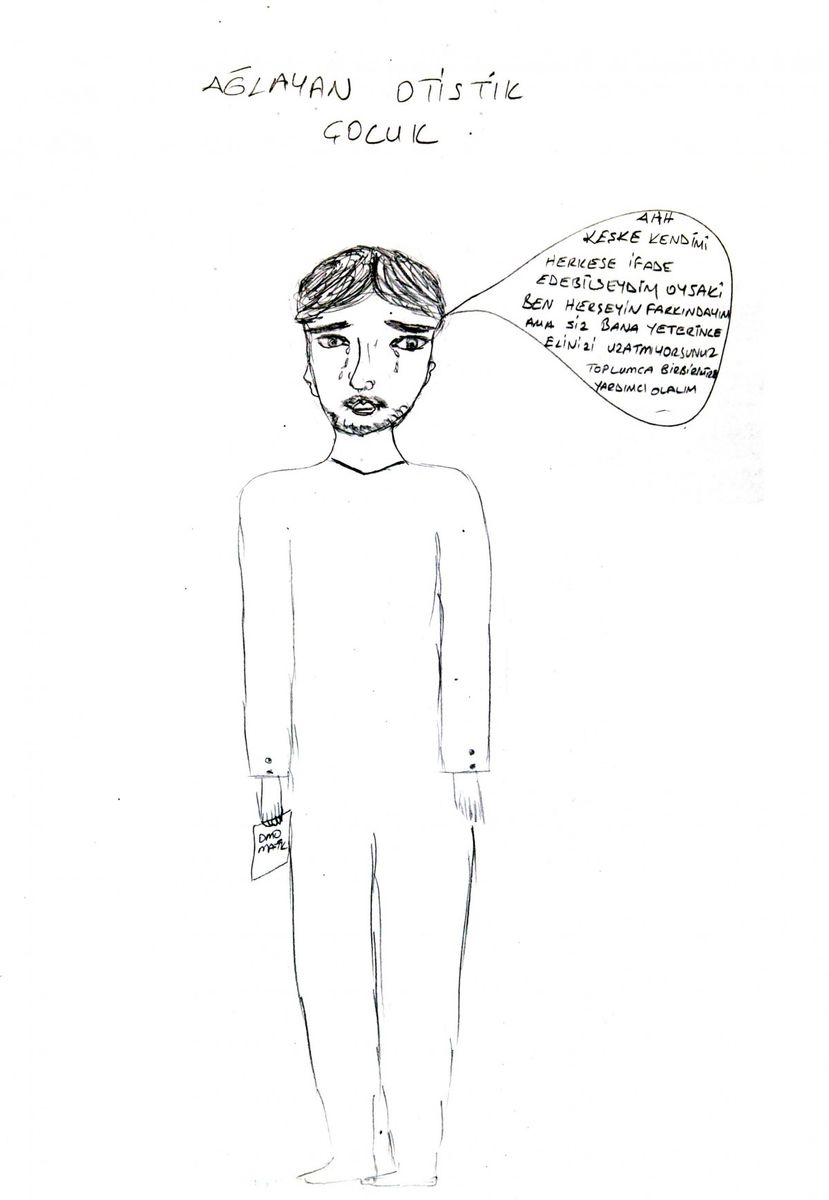 AĞLAYAN OTİSTİK
ÇOCUK
AHH
KEŞKE KENDİMİ
HERKESE İFADE
EDEBİLSEYDİM OYSAKİ
BEN HERŞEYİN FARKINDAYIM
AMA SİZ BANA YETERİNCE
ELİNİZİ UZATMIYORSUNUZ
TOPLUMCA BİRBİRİMİZE
YARDIMCI OLALIM
DMO
MATİK